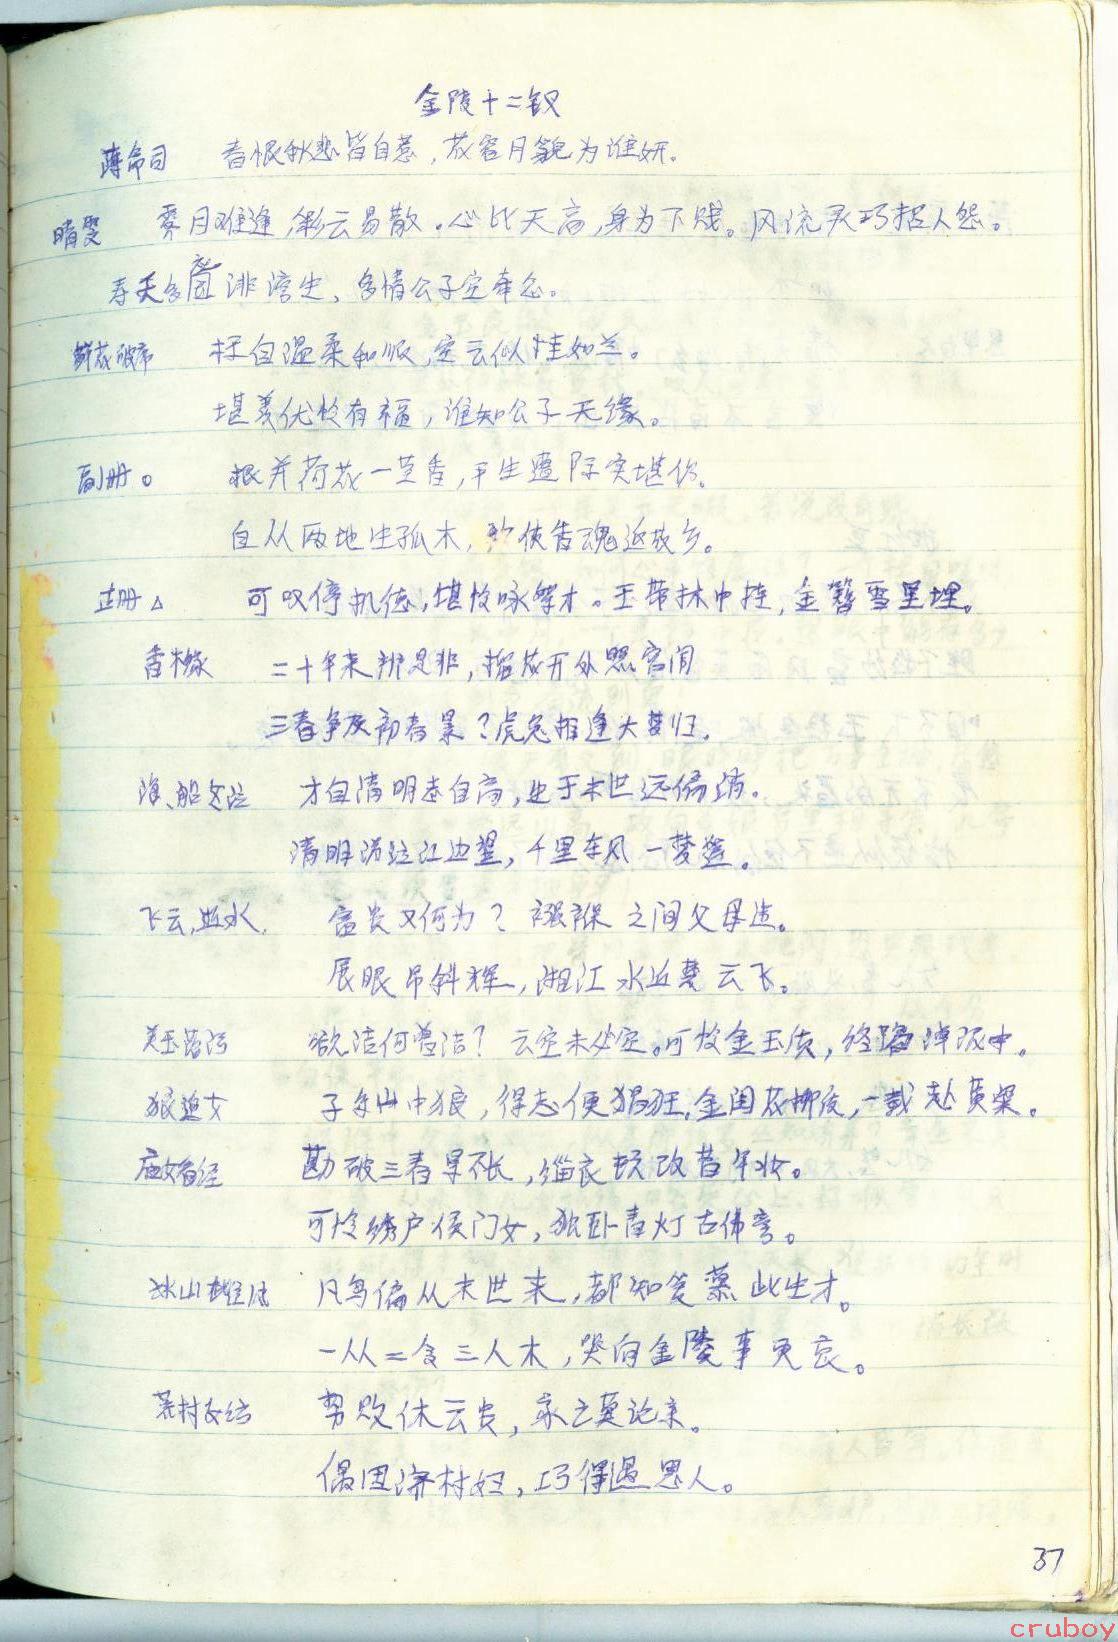 金陵十二钗
薄命司 春恨秋悲皆自惹，花容月貌为谁妍。
晴雯 霁月难逢，彩云易散。心比天高，身为下贱。风流灵巧招人怨。
寿夭多因诽谤生，多情公子空牵念。
鲜花破席 枉自温柔和顺，空云似桂如兰。
堪羡优伶有福，谁知公子无缘。
副册。 根并荷花一茎香，平生遭际实堪伤。
自从两地生孤木，致使香魂返故乡。
正册△ 可叹停机德，堪怜咏絮才。玉带林中挂，金簪雪里埋。
香橼 二十年来辨是非，榴花开处照宫闱
三春争及初春景？虎兔相逢大梦归。
海、船女泣 才自清明志自高，生于末世运偏消。
清明涕泣江边望，千里东风一梦遥。
飞云，逝水， 富贵又何为？襁褓之间父母违。
展眼吊斜辉，湘江水逝楚云飞。
美玉落污 欲洁何曾洁？云空未必空。可怜金玉质，终陷淖泥中。
狼追女 子系山中狼，得志便猖狂。金闺花柳质，一载赴黄粱。
庙女看经 勘破三春景不长，缁衣顿改昔年妆。
可怜绣户侯门女，独卧青灯古佛旁。
冰山雌凤 凡鸟偏从末世来，都知爱慕此生才。
一从二令三人木，哭向金陵事更哀。
荒村女纺 势败休云贵，家亡莫论亲。
偶因济村妇，巧得遇恩人。
37
cruboy